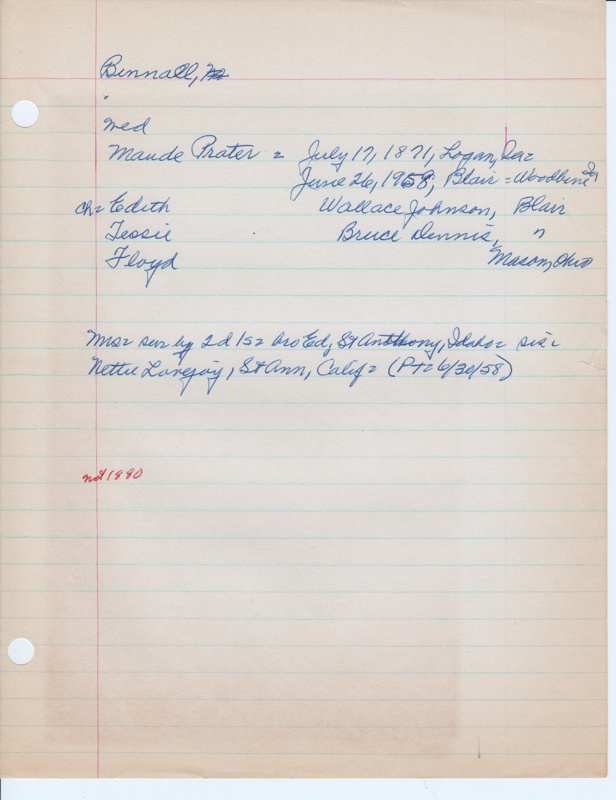 Binnall,
wed
Maude Prater = July 17, 1871, Logan, Ia =
June 26, 1958, Blair = Woodbine Ia
ch = Edith Wallace Johnson, Blair
Tessie Bruce Dennis, "
Floyd Mason, Ohio
Mrs = sur by 2 d 1 s = bro Ed, St Anthony, Idaho = sis =
Nettie Lovejoy, St Ann, Calif = (Pt = 6/30/58)
not 1880